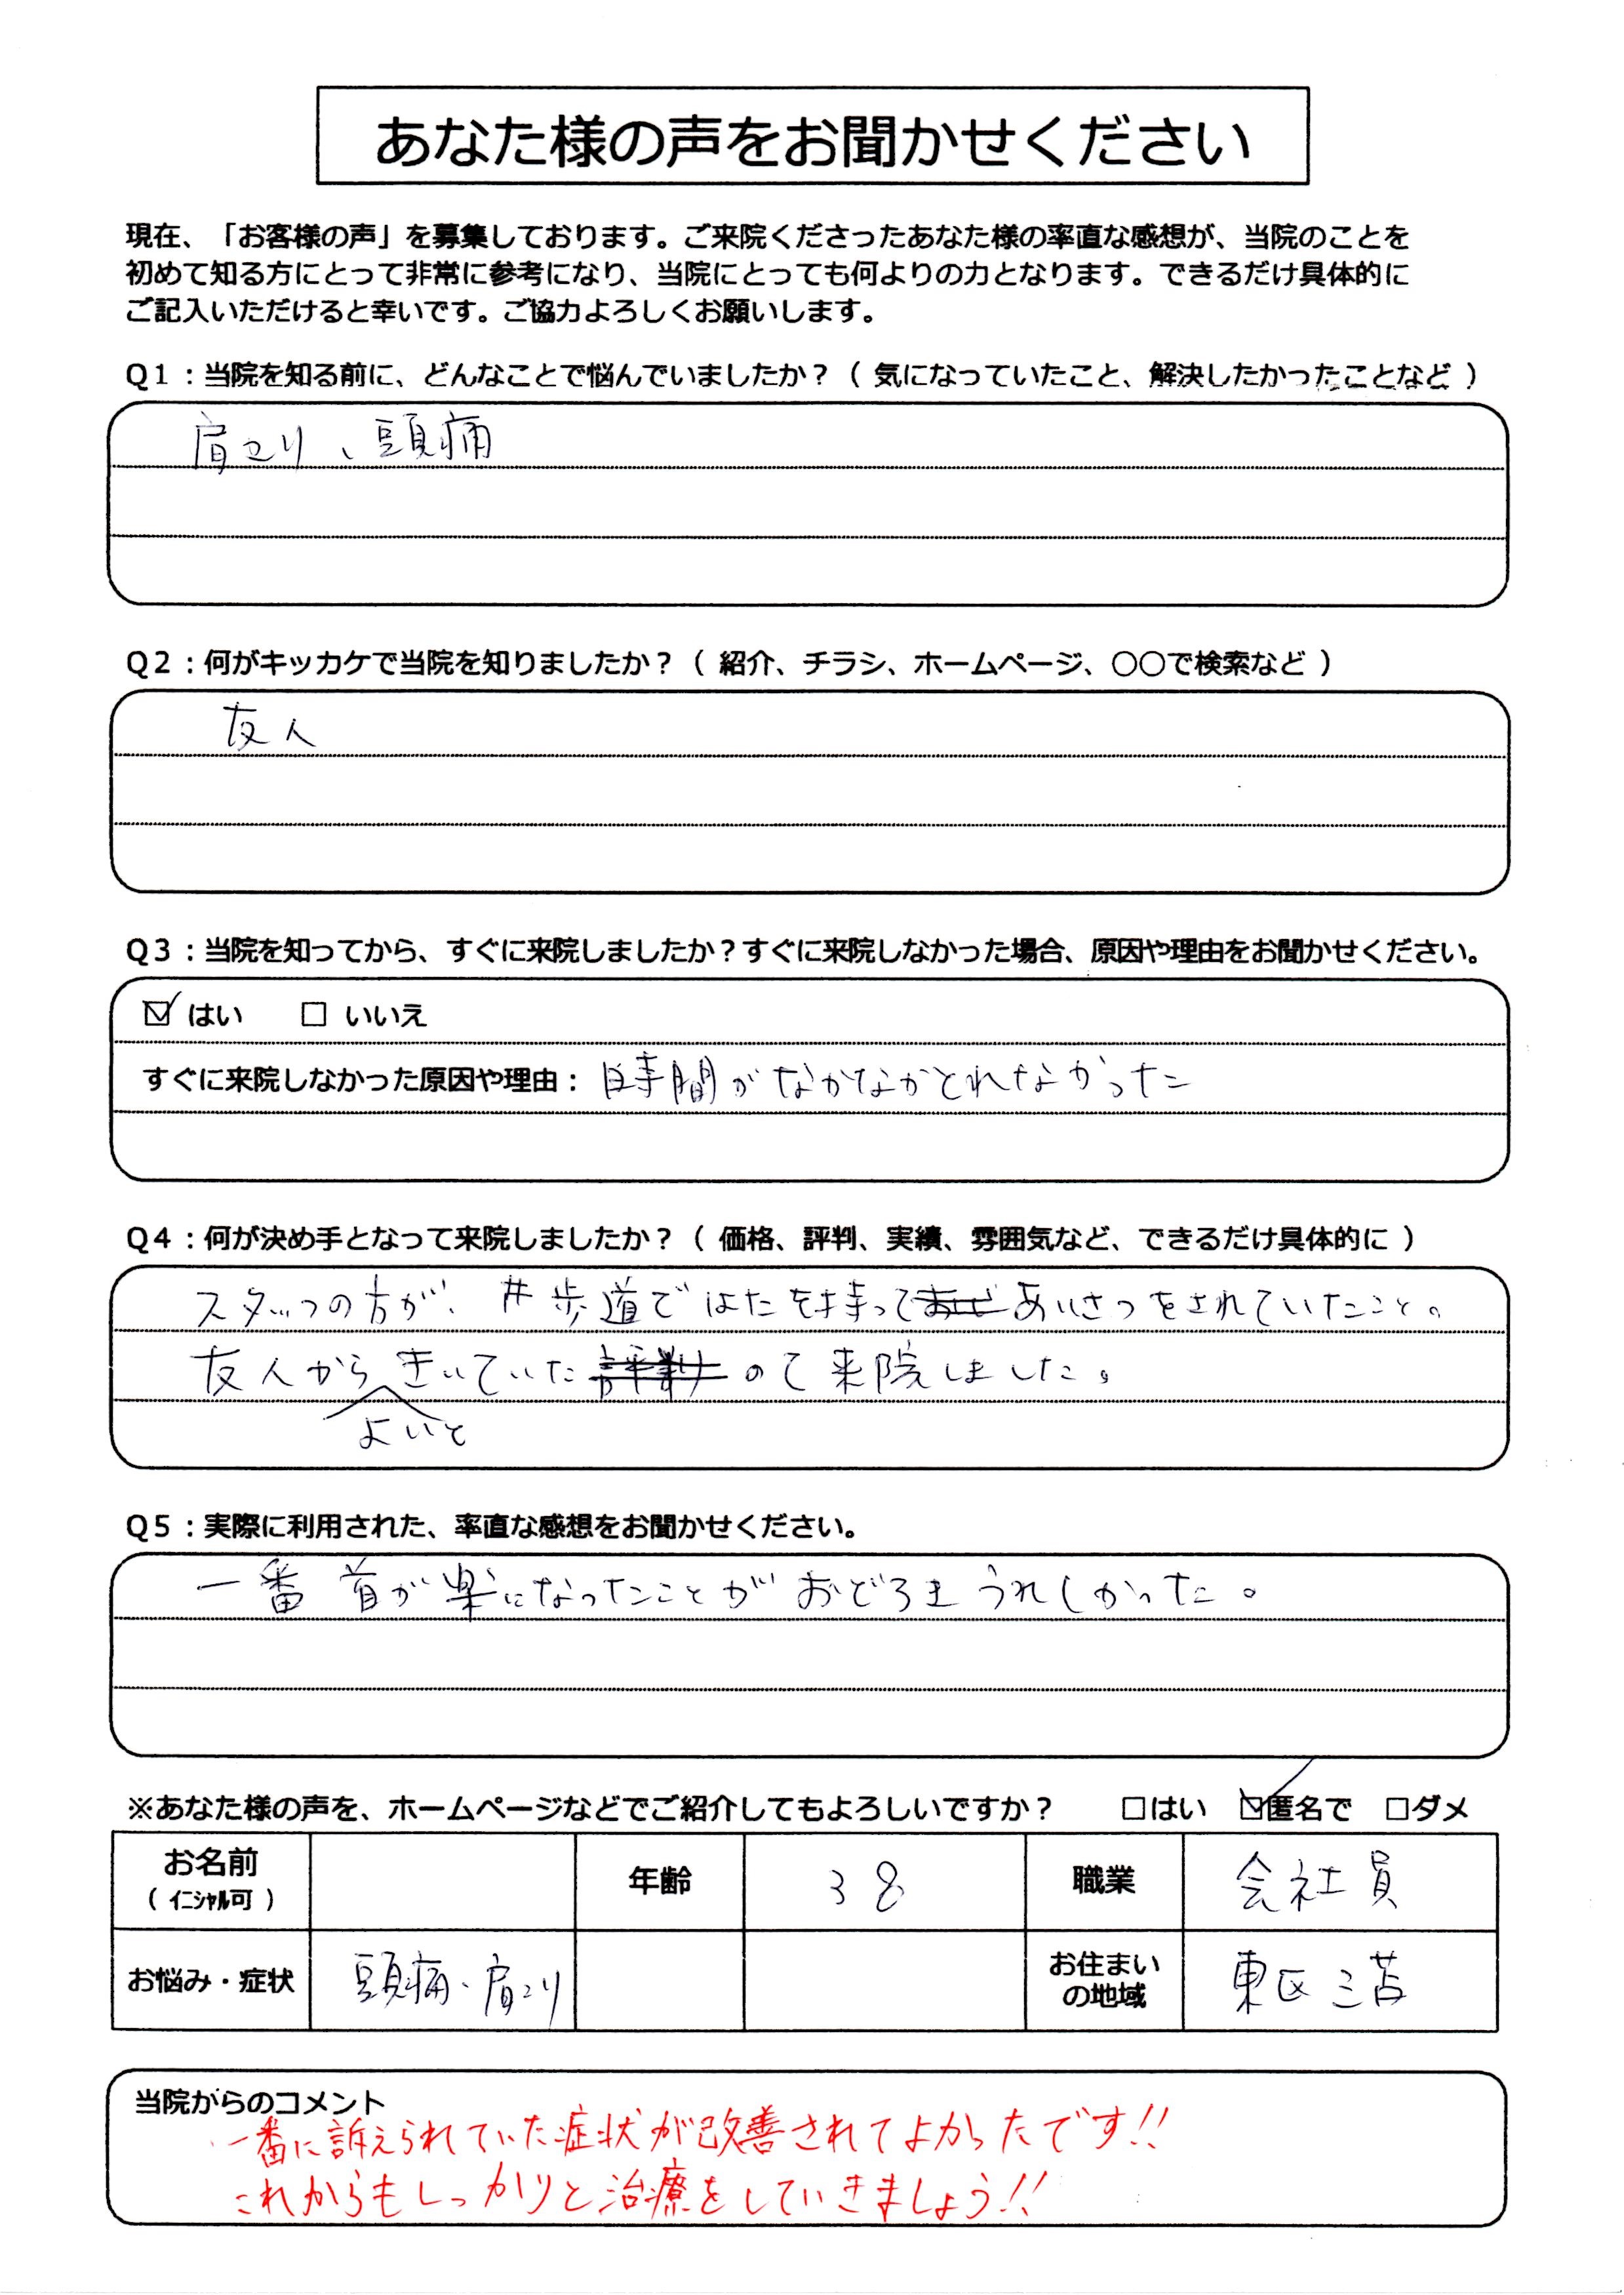 あなた様の声をお聞かせください
現在、「お客様の声」を募集しております。ご来院くださったあなた様の率直な感想が、当院のことを
初めて知る方にとって非常に参考になり、当院にとっても何よりの力となります。できるだけ具体的に
ご記入いただけると幸いです。ご協力よろしくお願いします。
Q1：当院を知る前に、どんなことで悩んでいましたか？（ 気になっていたこと、解決したかったことなど ）
肩こり、頭痛
Q2：何がキッカケで当院を知りましたか？（ 紹介、チラシ、ホームページ、〇〇で検索など ）
友人
Q3：当院を知ってから、すぐに来院しましたか？すぐに来院しなかった場合、原因や理由をお聞かせください。
☑ はい　□ いいえ
すぐに来院しなかった原因や理由：時間がなかなかとれなかった
Q4：何が決め手となって来院しましたか？（ 価格、評判、実績、雰囲気など、できるだけ具体的に ）
スタッフの方が、歩道ではたを持ってあいさつをされていたこと。
友人からきいていたので来院しました。
よいと
Q5：実際に利用された、率直な感想をお聞かせください。
一番 首が楽になったことがおどろきうれしかった。
※あなた様の声を、ホームページなどでご紹介してもよろしいですか？　□はい　☑匿名で　□ダメ
お名前 年齢 38 職業 会社員
（ イニシャル可 ）
お悩み・症状 頭痛・肩こり お住まいの地域 東区三苫
当院からのコメント
一番に訴えられていた症状が改善されてよかったです!!
これからもしっかりと治療をしていきましょう!!